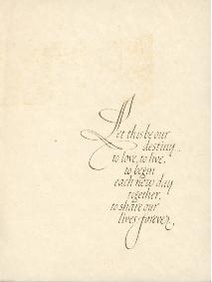 Let this be our
destiny...
to love, to live,
to begin
each new day
together,
to share our
lives forever...